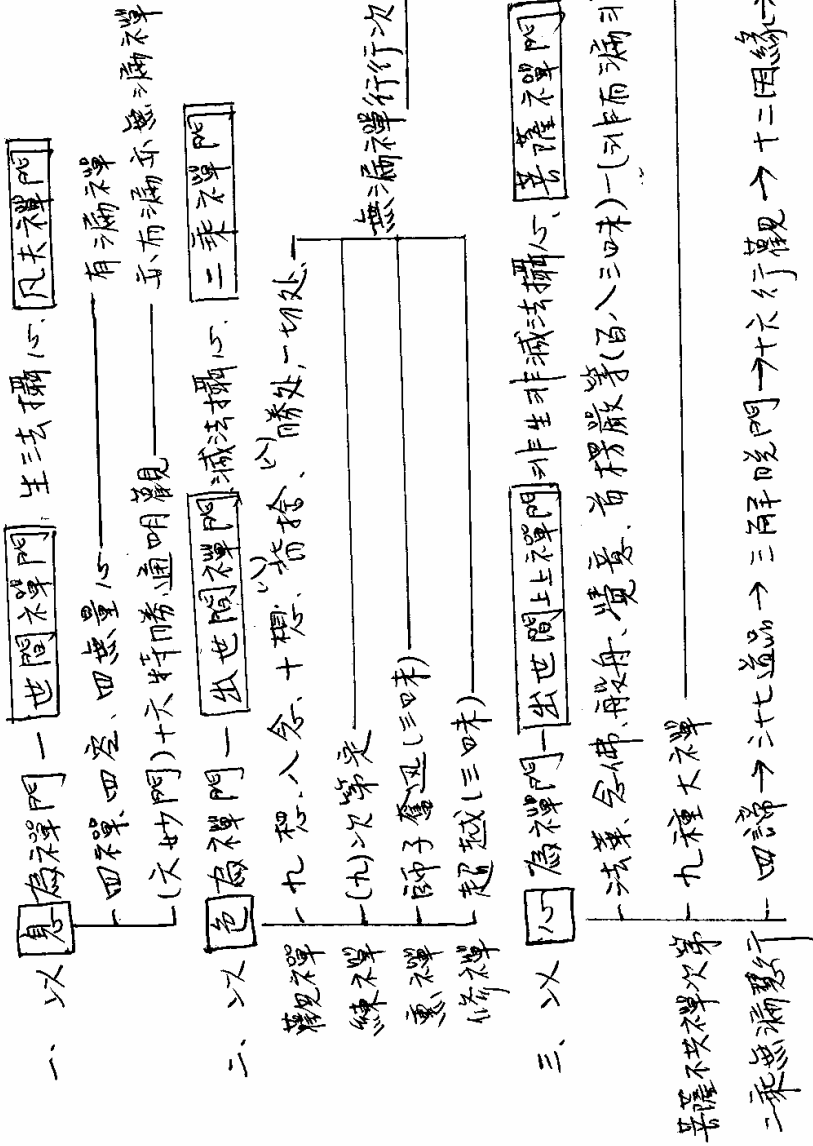 一、以息為禪門—世間禪門、生法攝心、凡夫禪門
四禪、四空、四無量心——有漏禪
(六妙門)十六特勝、通明觀——亦有漏亦無漏禪
二、以色為禪門—出世間禪門、滅法攝心、二乘禪門
觀禪 九想、八念、十想、背捨(八)、勝处(八)、一切处、
練禪 (九)次第定
熏禪 師子奮迅(三昧)
修禪 超越(三昧)
無漏禪行行次
三、以心為禪門—出世間上上禪門、非生非滅法攝心、菩薩禪門
法華、念佛、般舟、覺意、首楞嚴等(百八三昧)—(非有漏非
菩薩不共禪次第 九種大禪
二乘無漏慧行 四諦→三十七道品→三解脫門→十六行觀→十二因緣